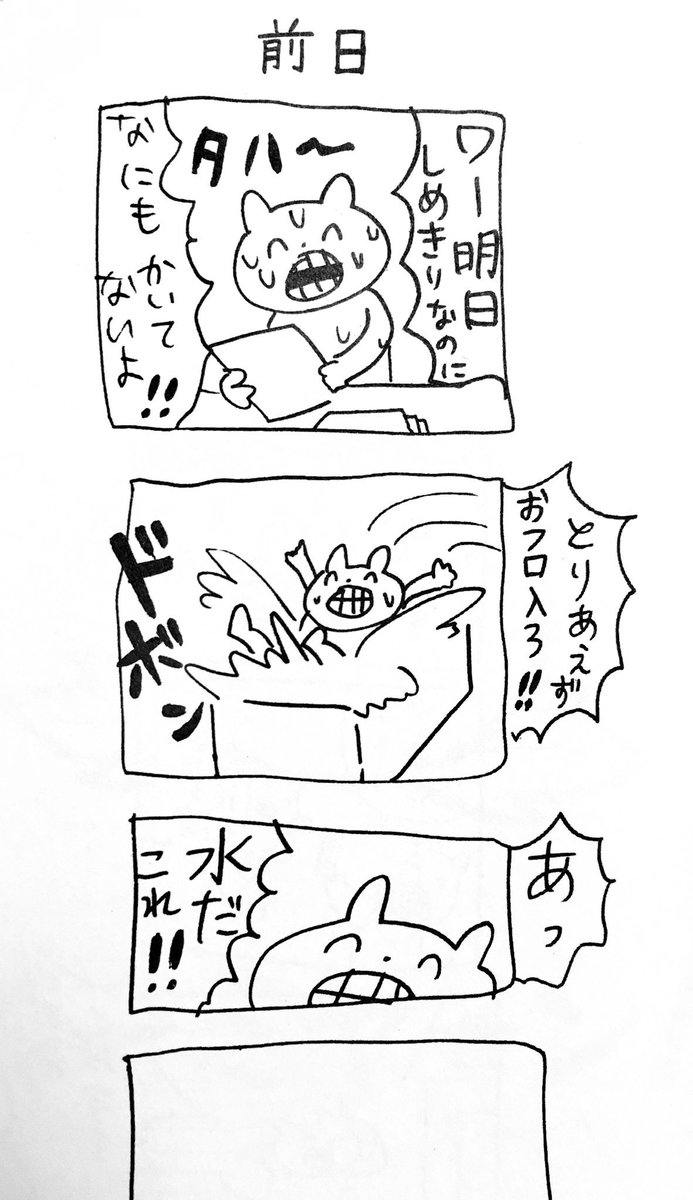 前日
ワー明日
しめきりなのに
タハ〜
なにも
かいて
ないよ!!
とりあえず
おフロ入ろ!!
ドボン
あっ
水だ
これ!!